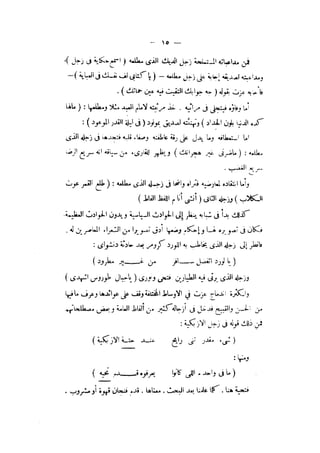 — ١٥ —
فن مداعباته المستملحة زجل الفيك الذى مطلعه ( اسمع حكاية فى رجل )
ومداعبته لصديقه إجابة على زجل مطلعه — ( يا كتانى لف نفسك فى العباية ) —
فأجابه عزت بقوله ( مه جوابك التقيت فيه عين حماتك ) .
أما وفاؤه فيتجلى فى مراثيه . خذ مرثيته لامام العبد مثلا ومطلعها : ( مالها
كده الدنيا بلون الحداد ) وتهنئته لصديق بمولود ( فى ليلة القدر الموعود ) :
اما استعطافه وما يدل على رقة عاطفته وصفاء قلبه فتجدها فى زجله الذى
مطلعه : ( ماضرنى غير هجرانك ) ويظهر للقارىء من سياقه انه سريع الرضا
سريع الغضب .
وأما انتقاده لمعارضيه فتراه واضحا فى زجله الذى مطلعه : ( طلع القمر عوت
الكلاب ) وزجله الثانى ( أنى أنا م اللفظ الغلط )
كذلك بدأ فى شبابه ينظر إلى الحوادث السياسية ويدون الحوادث العظيمة
فكان فى تصويره لها وإحكام وضعها أدق تصويرا من الشعراء المعاصرين له .
فانظر إلى زجله الذى يخاطب به اللورد كرومر بعد حادثة دنشواى :
( يا لورد الفصل سافر من غير مطرود )
وزجله الذى يرثى فيه الطيارين فتحى ونورى ( ياجبال طوروس اشهدى )
ولكثرة اندماج عزت فى الاوساط المختلفة وقف على عوائدها وعرف مافيها
من الحسن والقبيح فدخل فى أزجاله كثير من ألفاظ العامة وبعض مصطلحاتهم
فمن ذلك قوله فى زجل الازبكية :
( شىء مقدر نى رايح عند جنينة الازبكية )
ومنها :
( ما فى واحد ، اللى كانوا يعرفوه قدم تحيه )
فتحية هنا ، كما علمنا بعد البحث ، معناها . قدم فنجان قهوة أو مشروب .